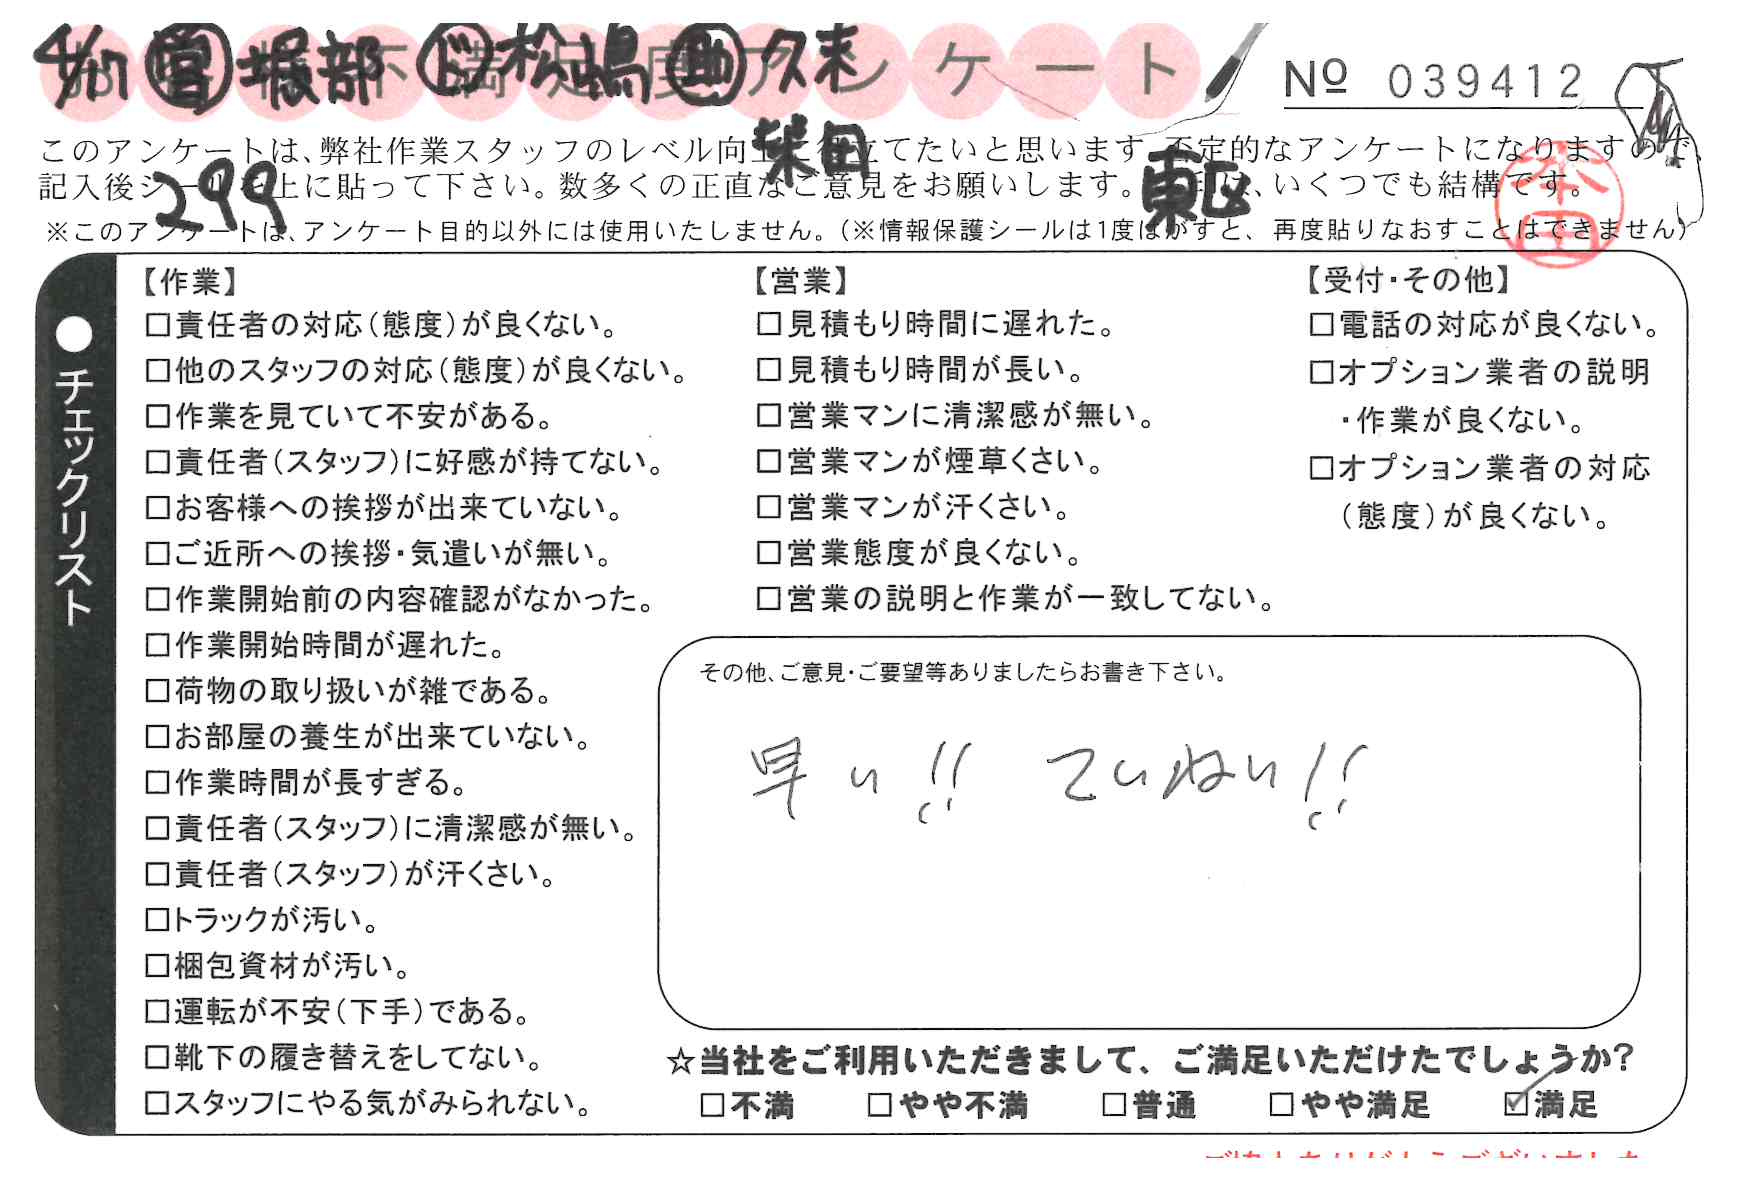 4/17 営 堀部 ド 松嶋 助 久来
柴田
299
東区
アンケート
No 039412
このアンケートは、弊社作業スタッフのレベル向上に役立てたいと思います。否定的なアンケートになりますので、
記入後シールを上に貼って下さい。数多くの正直なご意見をお願いします。 印は、いくつでも結構です。
※このアンケートは、アンケート目的以外には使用いたしません。(※情報保護シールは1度はがすと、再度貼りなおすことはできません)
本田
●チェックリスト
【作業】
□責任者の対応(態度)が良くない。
□他のスタッフの対応(態度)が良くない。
□作業を見ていて不安がある。
□責任者(スタッフ)に好感が持てない。
□お客様への挨拶が出来ていない。
□ご近所への挨拶・気遣いが無い。
□作業開始前の内容確認がなかった。
□作業開始時間が遅れた。
□荷物の取り扱いが雑である。
□お部屋の養生が出来ていない。
□作業時間が長すぎる。
□責任者(スタッフ)に清潔感が無い。
□責任者(スタッフ)が汗くさい。
□トラックが汚い。
□梱包資材が汚い。
□運転が不安(下手)である。
□靴下の履き替えをしてない。
□スタッフにやる気がみられない。
【営業】
□見積もり時間に遅れた。
□見積もり時間が長い。
□営業マンに清潔感が無い。
□営業マンが煙草くさい。
□営業マンが汗くさい。
□営業態度が良くない。
□営業の説明と作業が一致してない。
【受付・その他】
□電話の対応が良くない。
□オプション業者の説明
・作業が良くない。
□オプション業者の対応
(態度)が良くない。
その他、ご意見・ご要望等ありましたらお書き下さい。
早い!! ていねい!!
☆当社をご利用いただきまして、ご満足いただけたでしょうか?
□不満 □やや不満 □普通 □やや満足 ☑満足
ご協力ありがとうございました